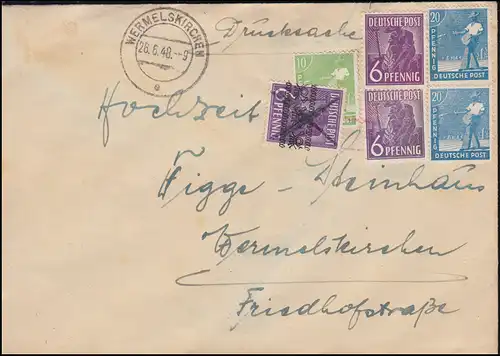 WERMELSKIRCHEN
28.6.48.-9
a
Drucksache
10
DEUTSCHE POST
6 PFENNIG
20 PFENNIG
DEUTSCHE POST
DEUTSCHE POST
6 PFENNIG
6 PFENNIG
20 PFENNIG
DEUTSCHE POST
Hochzeit
Figge - Steinhaus
Wermelskirchen
Friedhofstraße